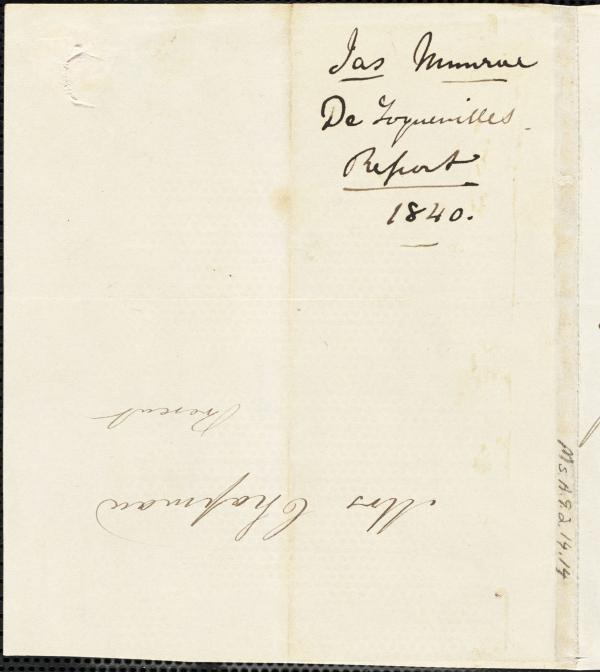 Jas Munroe
De Toquevilles
Report
1840.
Mrs Chapman
Present
Ms.A.9.2.14.14